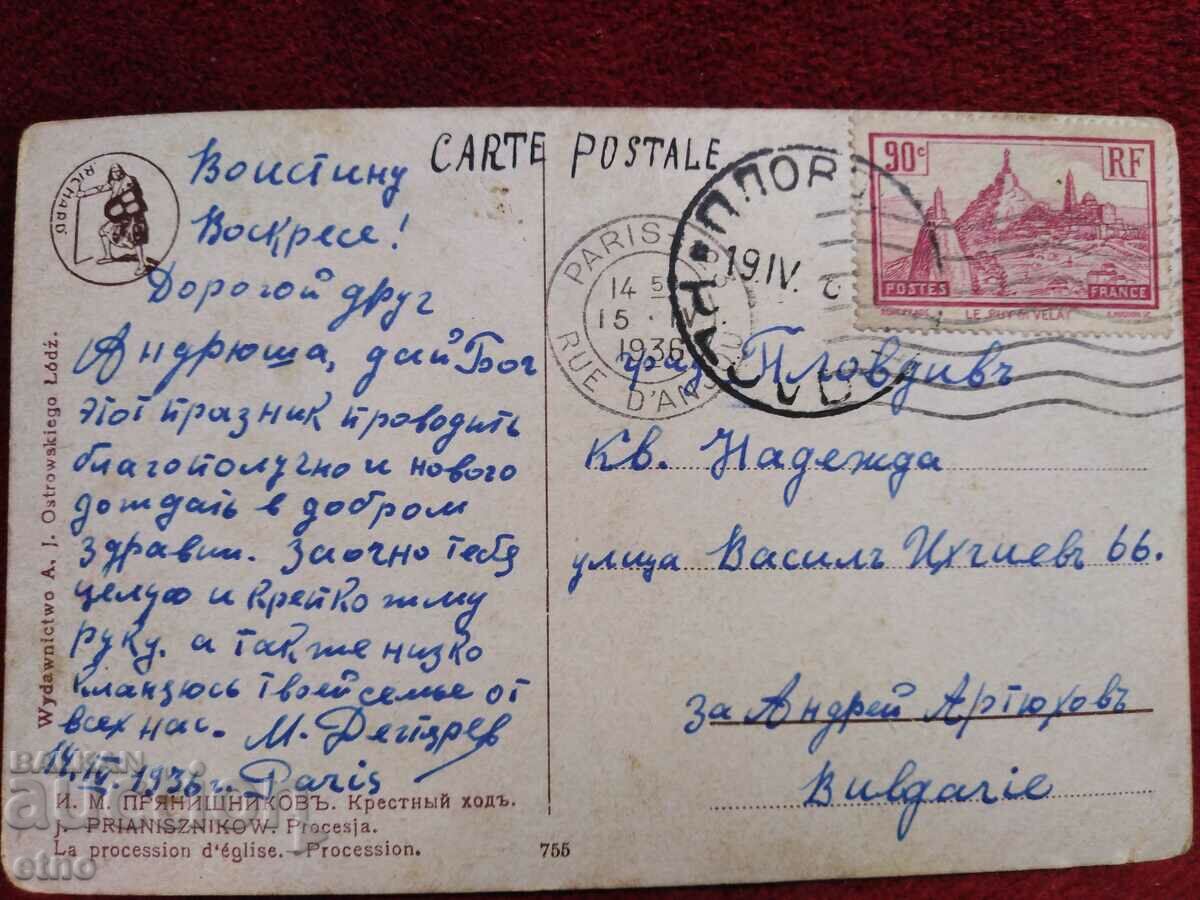 CARTE POSTALE
RICHARD
Воистину
Воскресе!
Дорогой друг
Андрюша, дай Бог
этот празник проводить
благополучно и нового
дождать в добром
здравии. Заочно тебя
целую и крепко жму
руку, а также низко
кланяюсь твоей семье от
всех нас. М. Дегтярев
14.IV.1936 г. Paris
И. М. ПРЯНИШНИКОВЪ. Крестный ходъ.
J. PRIANISZNIKOW. Procesja.
La procession d'église. - Procession.
755
Wydawnictwo A. J. Ostrowskiego Łódź.
90c RF
POSTES FRANCE
LE PUY EN VELAY
PARIS
14
15
1936
RUE D'ANJOU
19.IV.
град Пловдивъ
кв. Надежда
улица Василъ Ихчиевъ 66.
за Андрей Артюховъ
Bulgarie
BALKAN
auction
etno